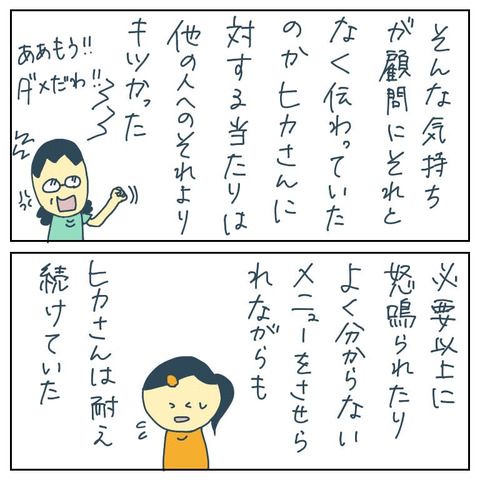 そんな気持ち
が顧問にそれと
なく伝わっていた
のかヒカさんに
対する当たりは
他の人へのそれより
キツかった
ああもう!!
ダメだわ!!
必要以上に
怒鳴られたり
よく分からない
メニューをさせら
れながらも
ヒカさんは耐え
続けていた